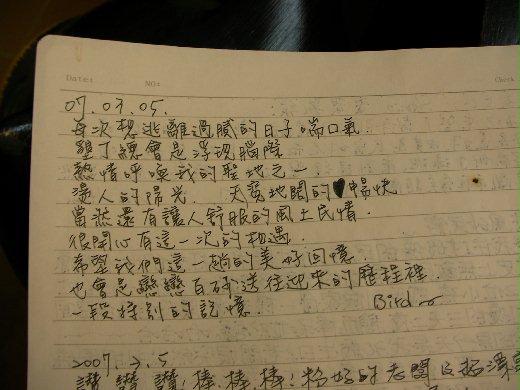 Date:
NO:
Check
07.03.05.
每次想逃離過膩的日子喘口氣.
墾丁總會是浮現腦際
熱情呼喚我的聖地之一.
燙人的陽光. 天寬地闊的 暢快
當然還有讓人舒服的風土民情.
很開心有這一次的相遇.
希望我們這一趟的美好回憶.
也會是戀戀百砂送往迎來的歷程裡.
一段特別的記憶.
Bird
2007.3.5
讚 讚 讚! 棒、棒、棒! 的老闆